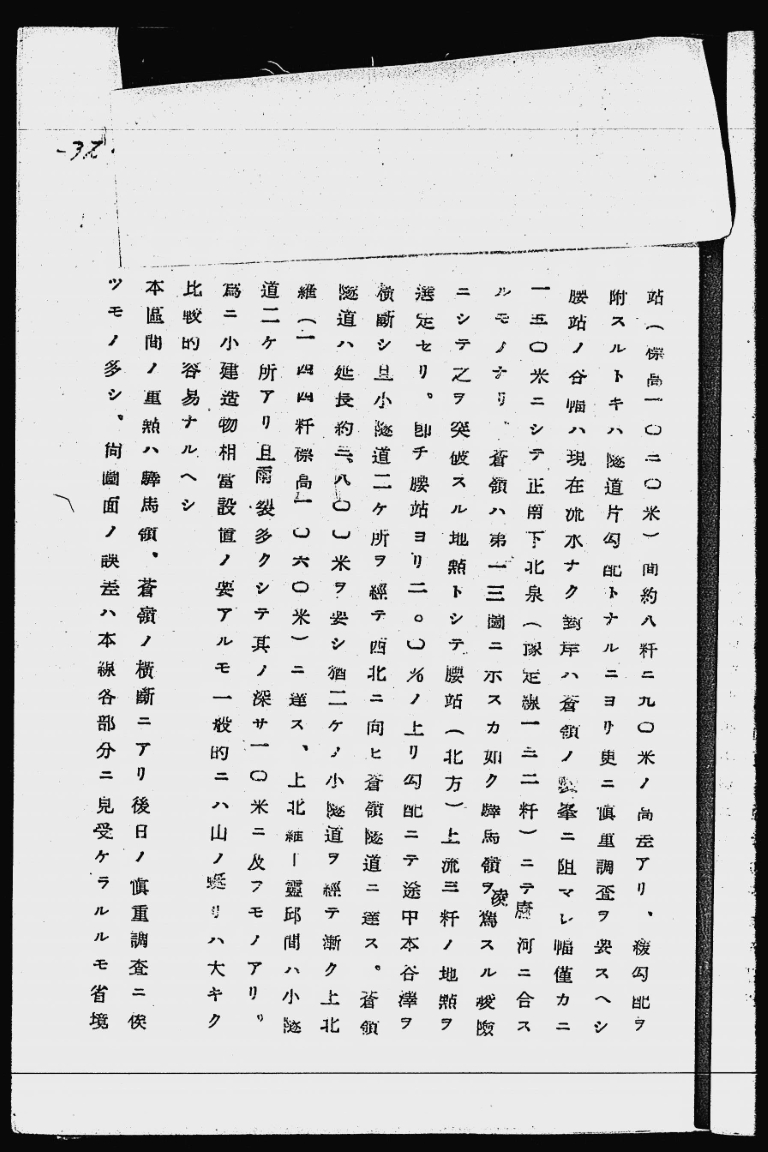 站（標高一〇二〇米）間約八粁ニ九〇米ノ高差アリ、緩勾配ヲ
附スルトキハ隧道片勾配トナルニヨリ更ニ愼重調査ヲ要スヘシ
腰站ノ谷幅ハ現在流水ナク對岸ハ蒼領ノ峯ニ阻マレ幅僅カニ
一五〇米ニシテ正南下北泉（豫定線一三二粁）ニテ唐河ニ合ス
ルモノナリ、蒼領ハ第一三圖ニ示スカ如ク驛馬領ヲ凌駕スル峻險
ニシテ之ヲ突破スル地點トシテ腰站（北方）上流三粁ノ地點ヲ
選定セリ。即チ腰站ヨリ二〇。〇％ノ上リ勾配ニテ途中本谷澤ヲ
橫斷シ且小隧道二ケ所ヲ經テ西北ニ向ヒ蒼領隧道ニ達ス。蒼領
隧道ハ延長約三、八〇〇米ヲ要シ猶二ケノ小隧道ヲ經テ漸ク上北
維（一四四粁標高一〇六〇米）ニ達ス、上北維ー靈邱間ハ小隧
道二ケ所アリ且雨裂多クシテ其ノ深サ一〇米ニ及フモノアリ。
爲ニ小建造物相當設置ノ要アルモ一般的ニハ山ノリハ大キク
比較的容易ナルヘシ
本區間ノ重點ハ驛馬領、蒼嶺ノ橫斷ニアリ後日ノ愼重調査ニ俟
ツモノ多シ、尙圖面ノ誤差ハ本線各部分ニ見受ケラルルモ省境